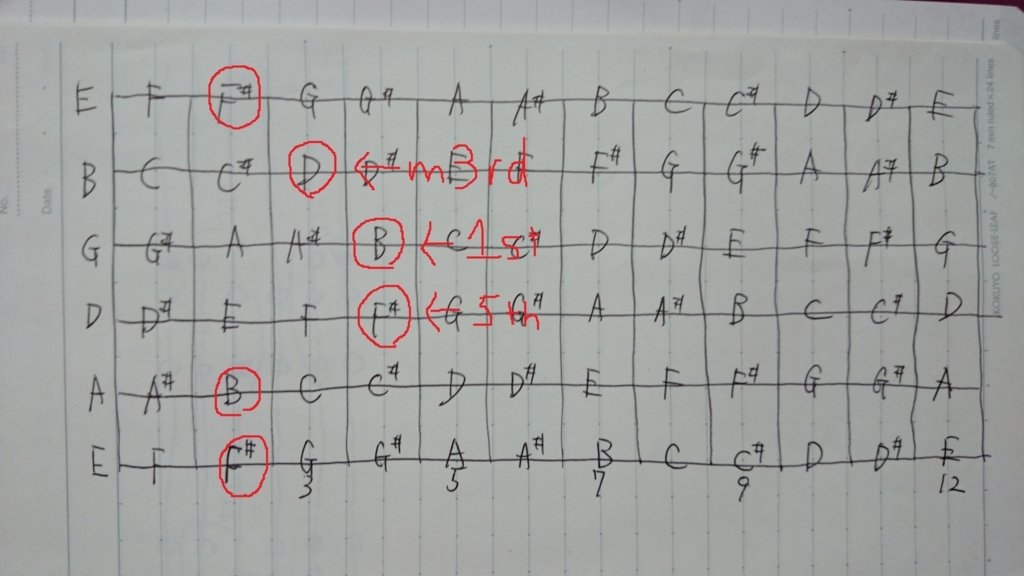 No.
Date
E F F# G G# A A# B C C# D D# E
B C C# D D# E F F# G G# A A# B
← m3rd
G G# A A# B C C# D D# E F F# G
← 1st
D D# E F F# G G# A A# B C C# D
← 5th
A A# B C C# D D# E F F# G G# A
E F F# G G# A A# B C C# D D# E
3 5 7 9 12
KOKUYO LOOSE-LEAF ノ-807AT 7 mm ruled × 24 lines
lines